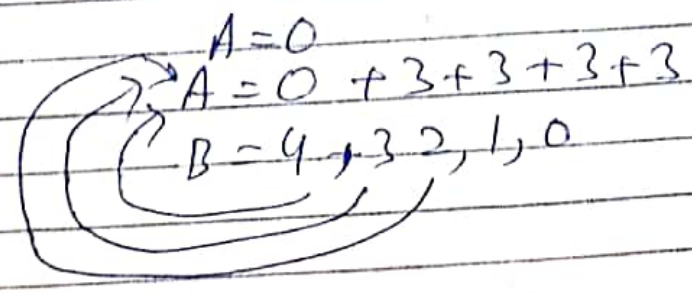 A=0
A=0 +3+3+3+3
B=4,32,1,0